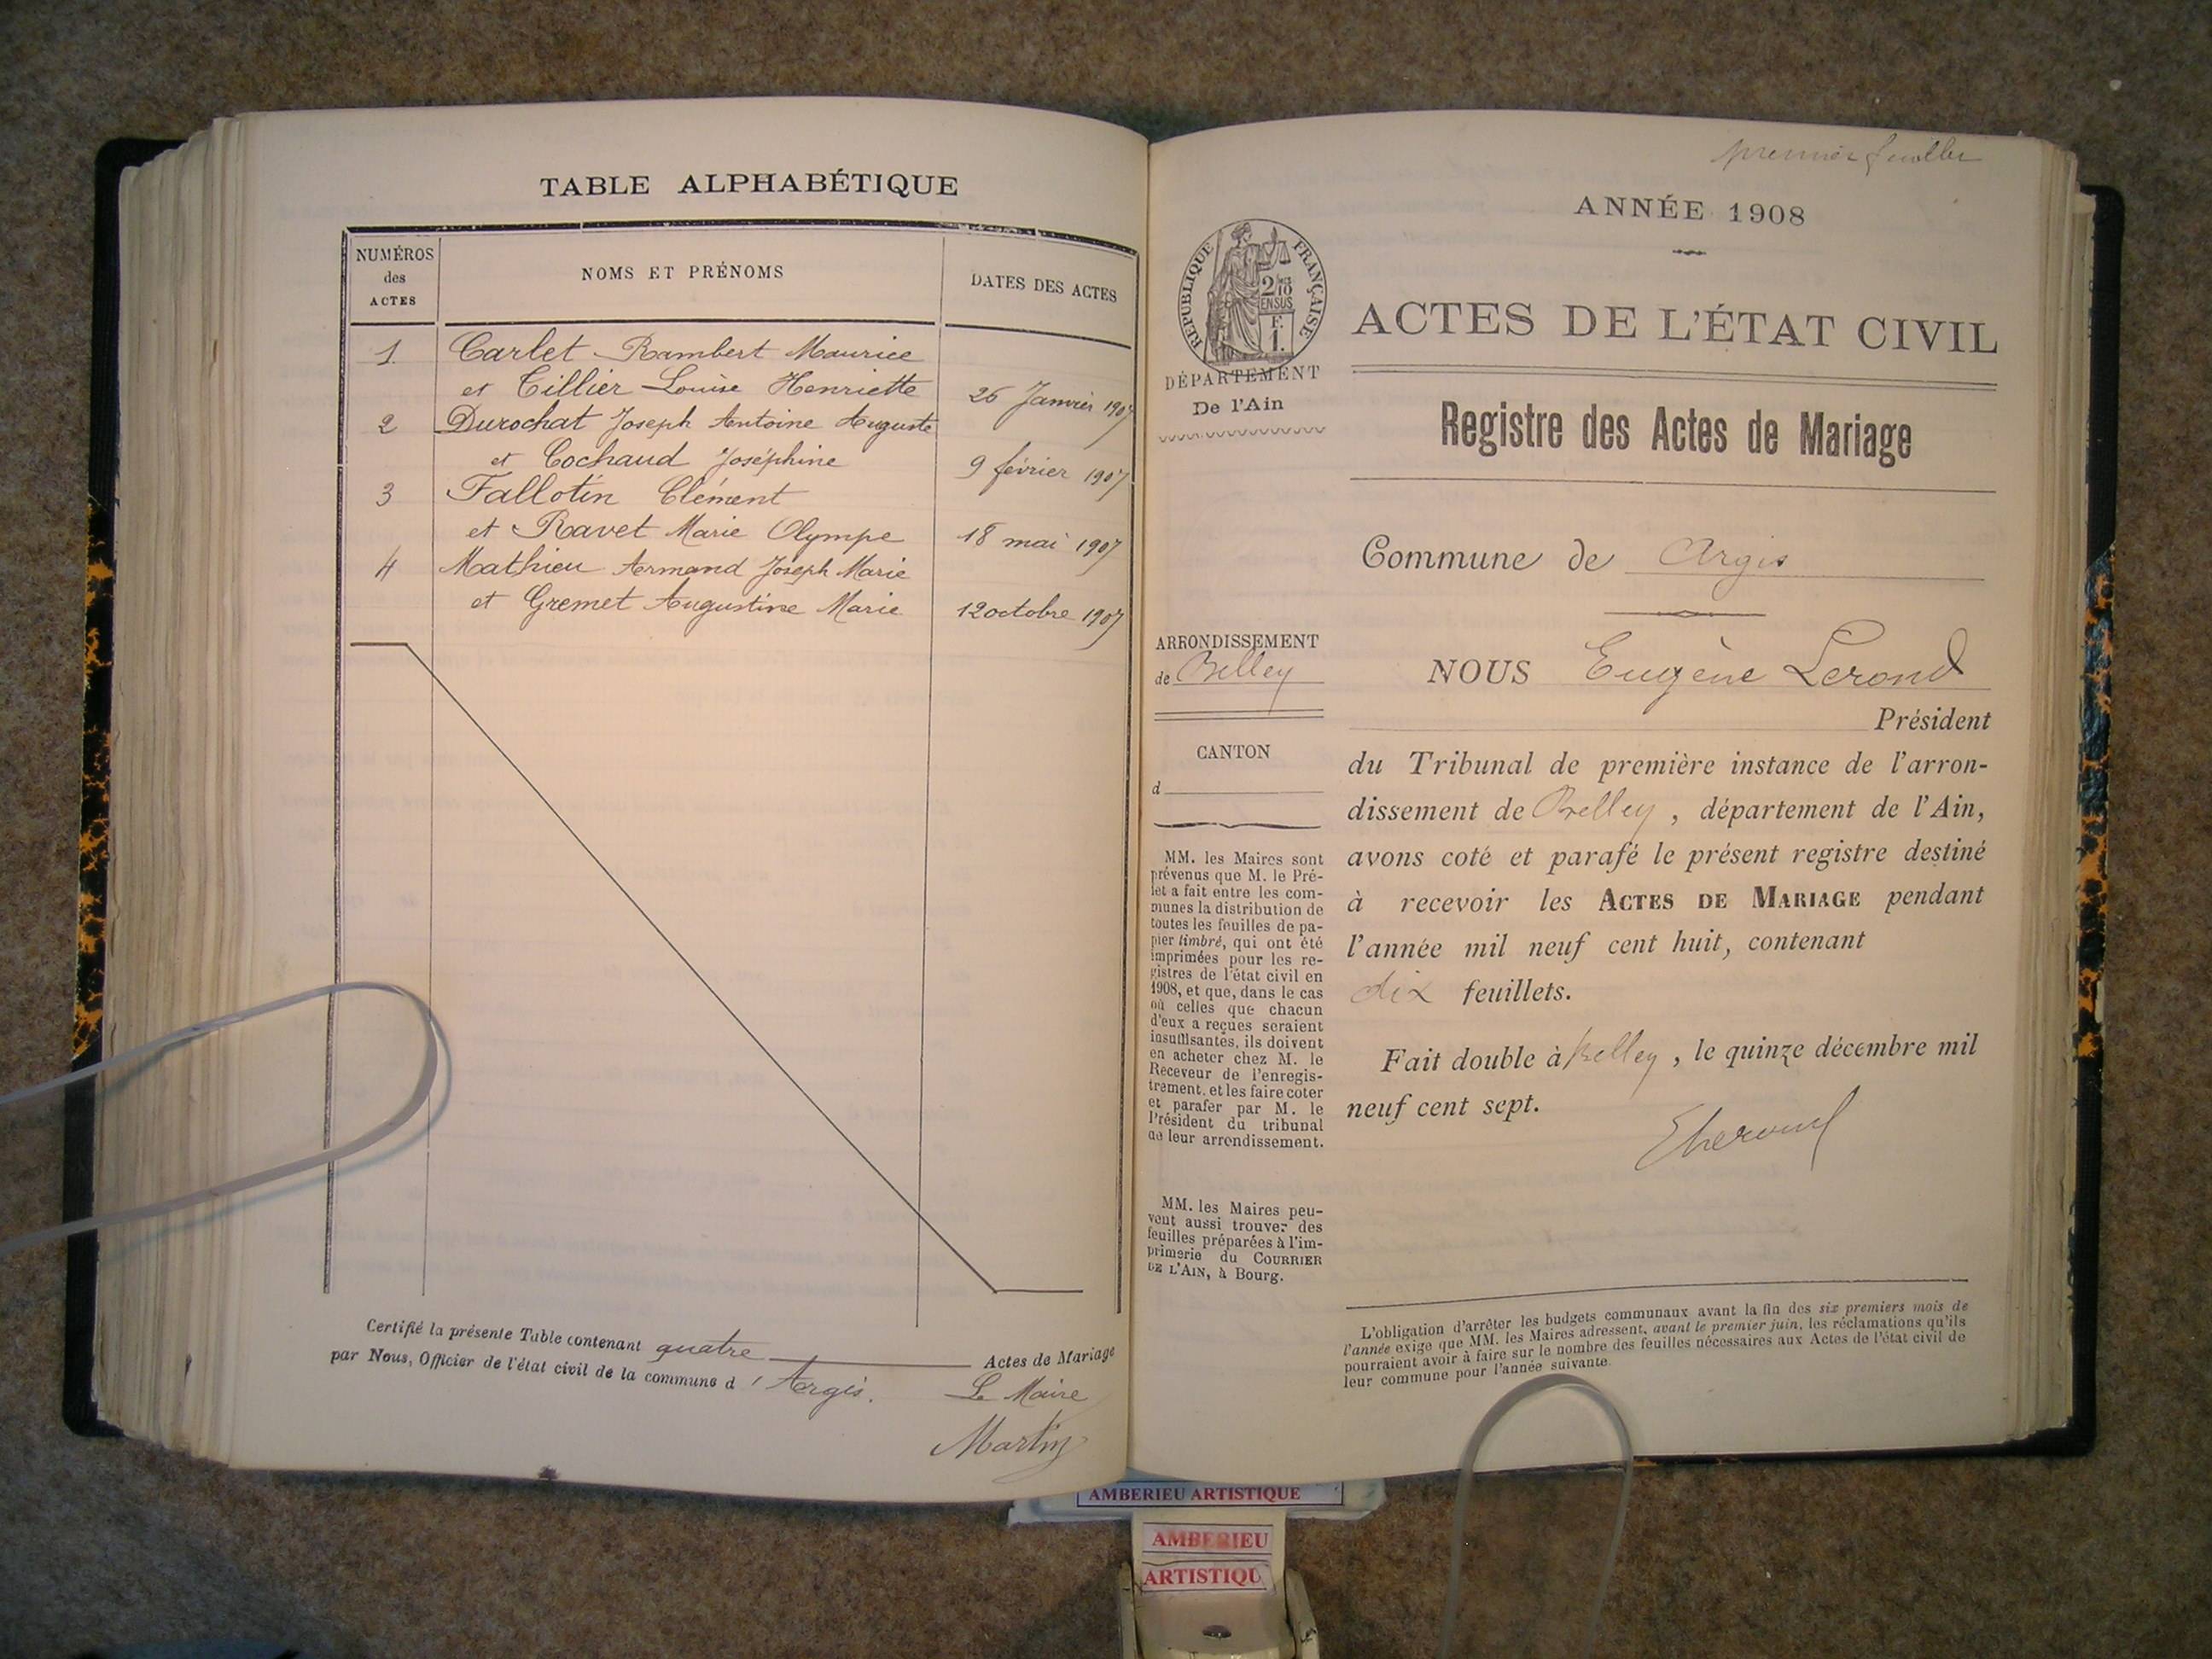 TABLE ALPHABÉTIQUE
NUMÉROS
des
ACTES
NOMS ET PRÉNOMS
DATES DES ACTES
1 Carlet Rambert Maurice
et Tillier Louise Henriette 26 Janvier 1907
2 Durochat Joseph Antoine Auguste
et Cochaud Joséphine 9 février 1907
3 Fallotin Clément
et Ravet Marie Olympe 18 mai 1907
4 Mathieu Armand Joseph Marie
et Gremet Augustine Marie 12 octobre 1907
Certifié la présente Table contenant quatre Actes de Mariage
par Nous, Officier de l'état civil de la commune d'Argis.
Le Maire
Martin
premier feuillet
ANNÉE 1908
RÉPUBLIQUE FRANÇAISE
2/10
EN SUS
F.
1.
DÉPARTEMENT
De l'Ain
ACTES DE L'ÉTAT CIVIL
Registre des Actes de Mariage
Commune de Argis
ARRONDISSEMENT
de Belley
CANTON
d
NOUS Eugène Lerond
Président
du Tribunal de première instance de l'arron-
dissement de Belley, département de l'Ain,
avons coté et parafé le présent registre destiné
à recevoir les ACTES DE MARIAGE pendant
l'année mil neuf cent huit, contenant
dix feuillets.
Fait double à Belley, le quinze décembre mil
neuf cent sept.
MM. les Maires sont
prévenus que M. le Pré-
fet a fait entre les com-
munes la distribution de
toutes les feuilles de pa-
pier timbré, qui ont été
imprimées pour les re-
gistres de l'état civil en
1908, et que, dans le cas
où celles que chacun
d'eux a reçues seraient
insuffisantes, ils doivent
en acheter chez M. le
Receveur de l'enregis-
trement, et les faire coter
et parafer par M. le
Président du tribunal
de leur arrondissement.
MM. les Maires peu-
vent aussi trouver des
feuilles préparées à l'im-
primerie du COURRIER
DE L'AIN, à Bourg.
L'obligation d'arrêter les budgets communaux avant la fin des six premiers mois de
l'année exige que MM. les Maires adressent, avant le premier juin, les réclamations qu'ils
pourraient avoir à faire sur le nombre des feuilles nécessaires aux Actes de l'état civil de
leur commune pour l'année suivante.
AMBERIEU ARTISTIQUE
AMBERIEU
ARTISTIQU